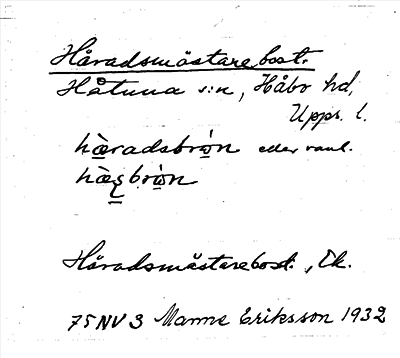 Häradsmästarebost.
Håtuna s:n, Håbo hd,
Upps. l.
hæradsbrón eller vanl.
Häradsmästarebost., Ek.
75 NV 3 Manne Eriksson 1932